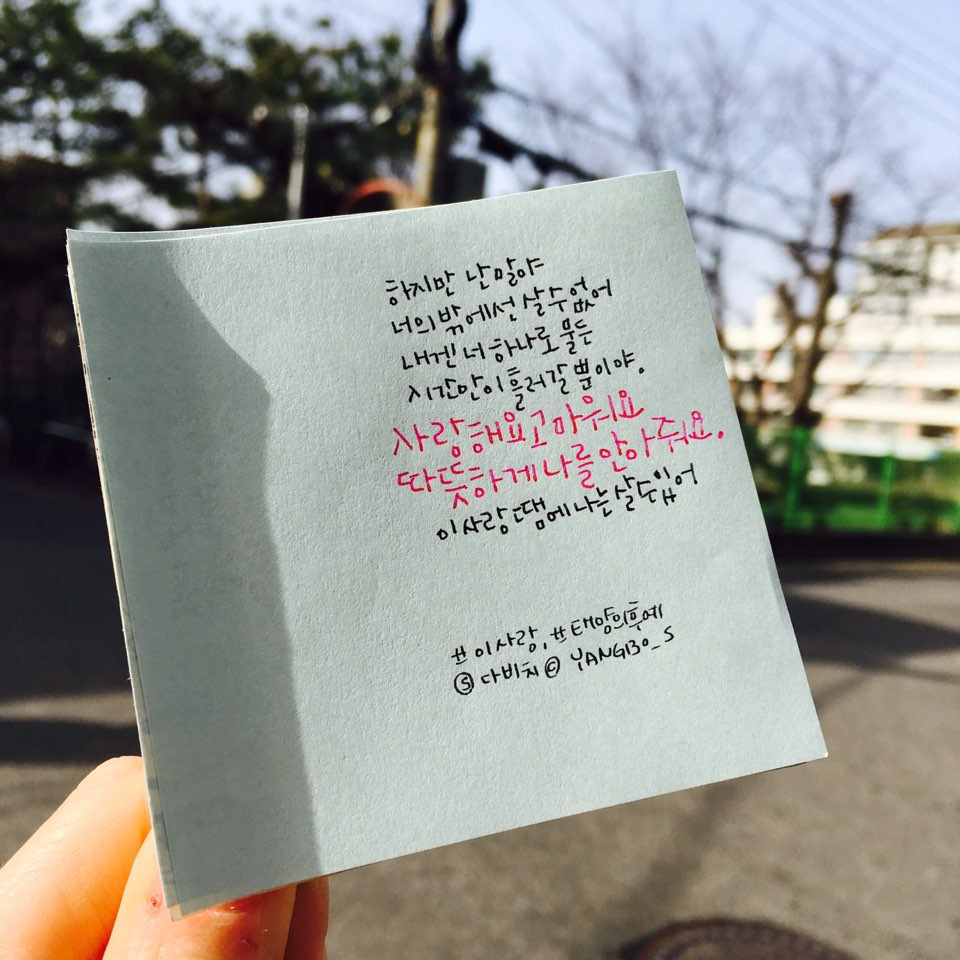 하지만 난 말야
너의 밖에선 살 수 없어
내겐 너 하나로 물든
시간만이 흘러갈 뿐이야.
사랑해요 고마워요
따뜻하게 나를 안아줘요.
이 사랑 땜에 나는 살 수 있어
#이사랑, #태양의후예
Ⓢ 다비치 © YANGBO_S